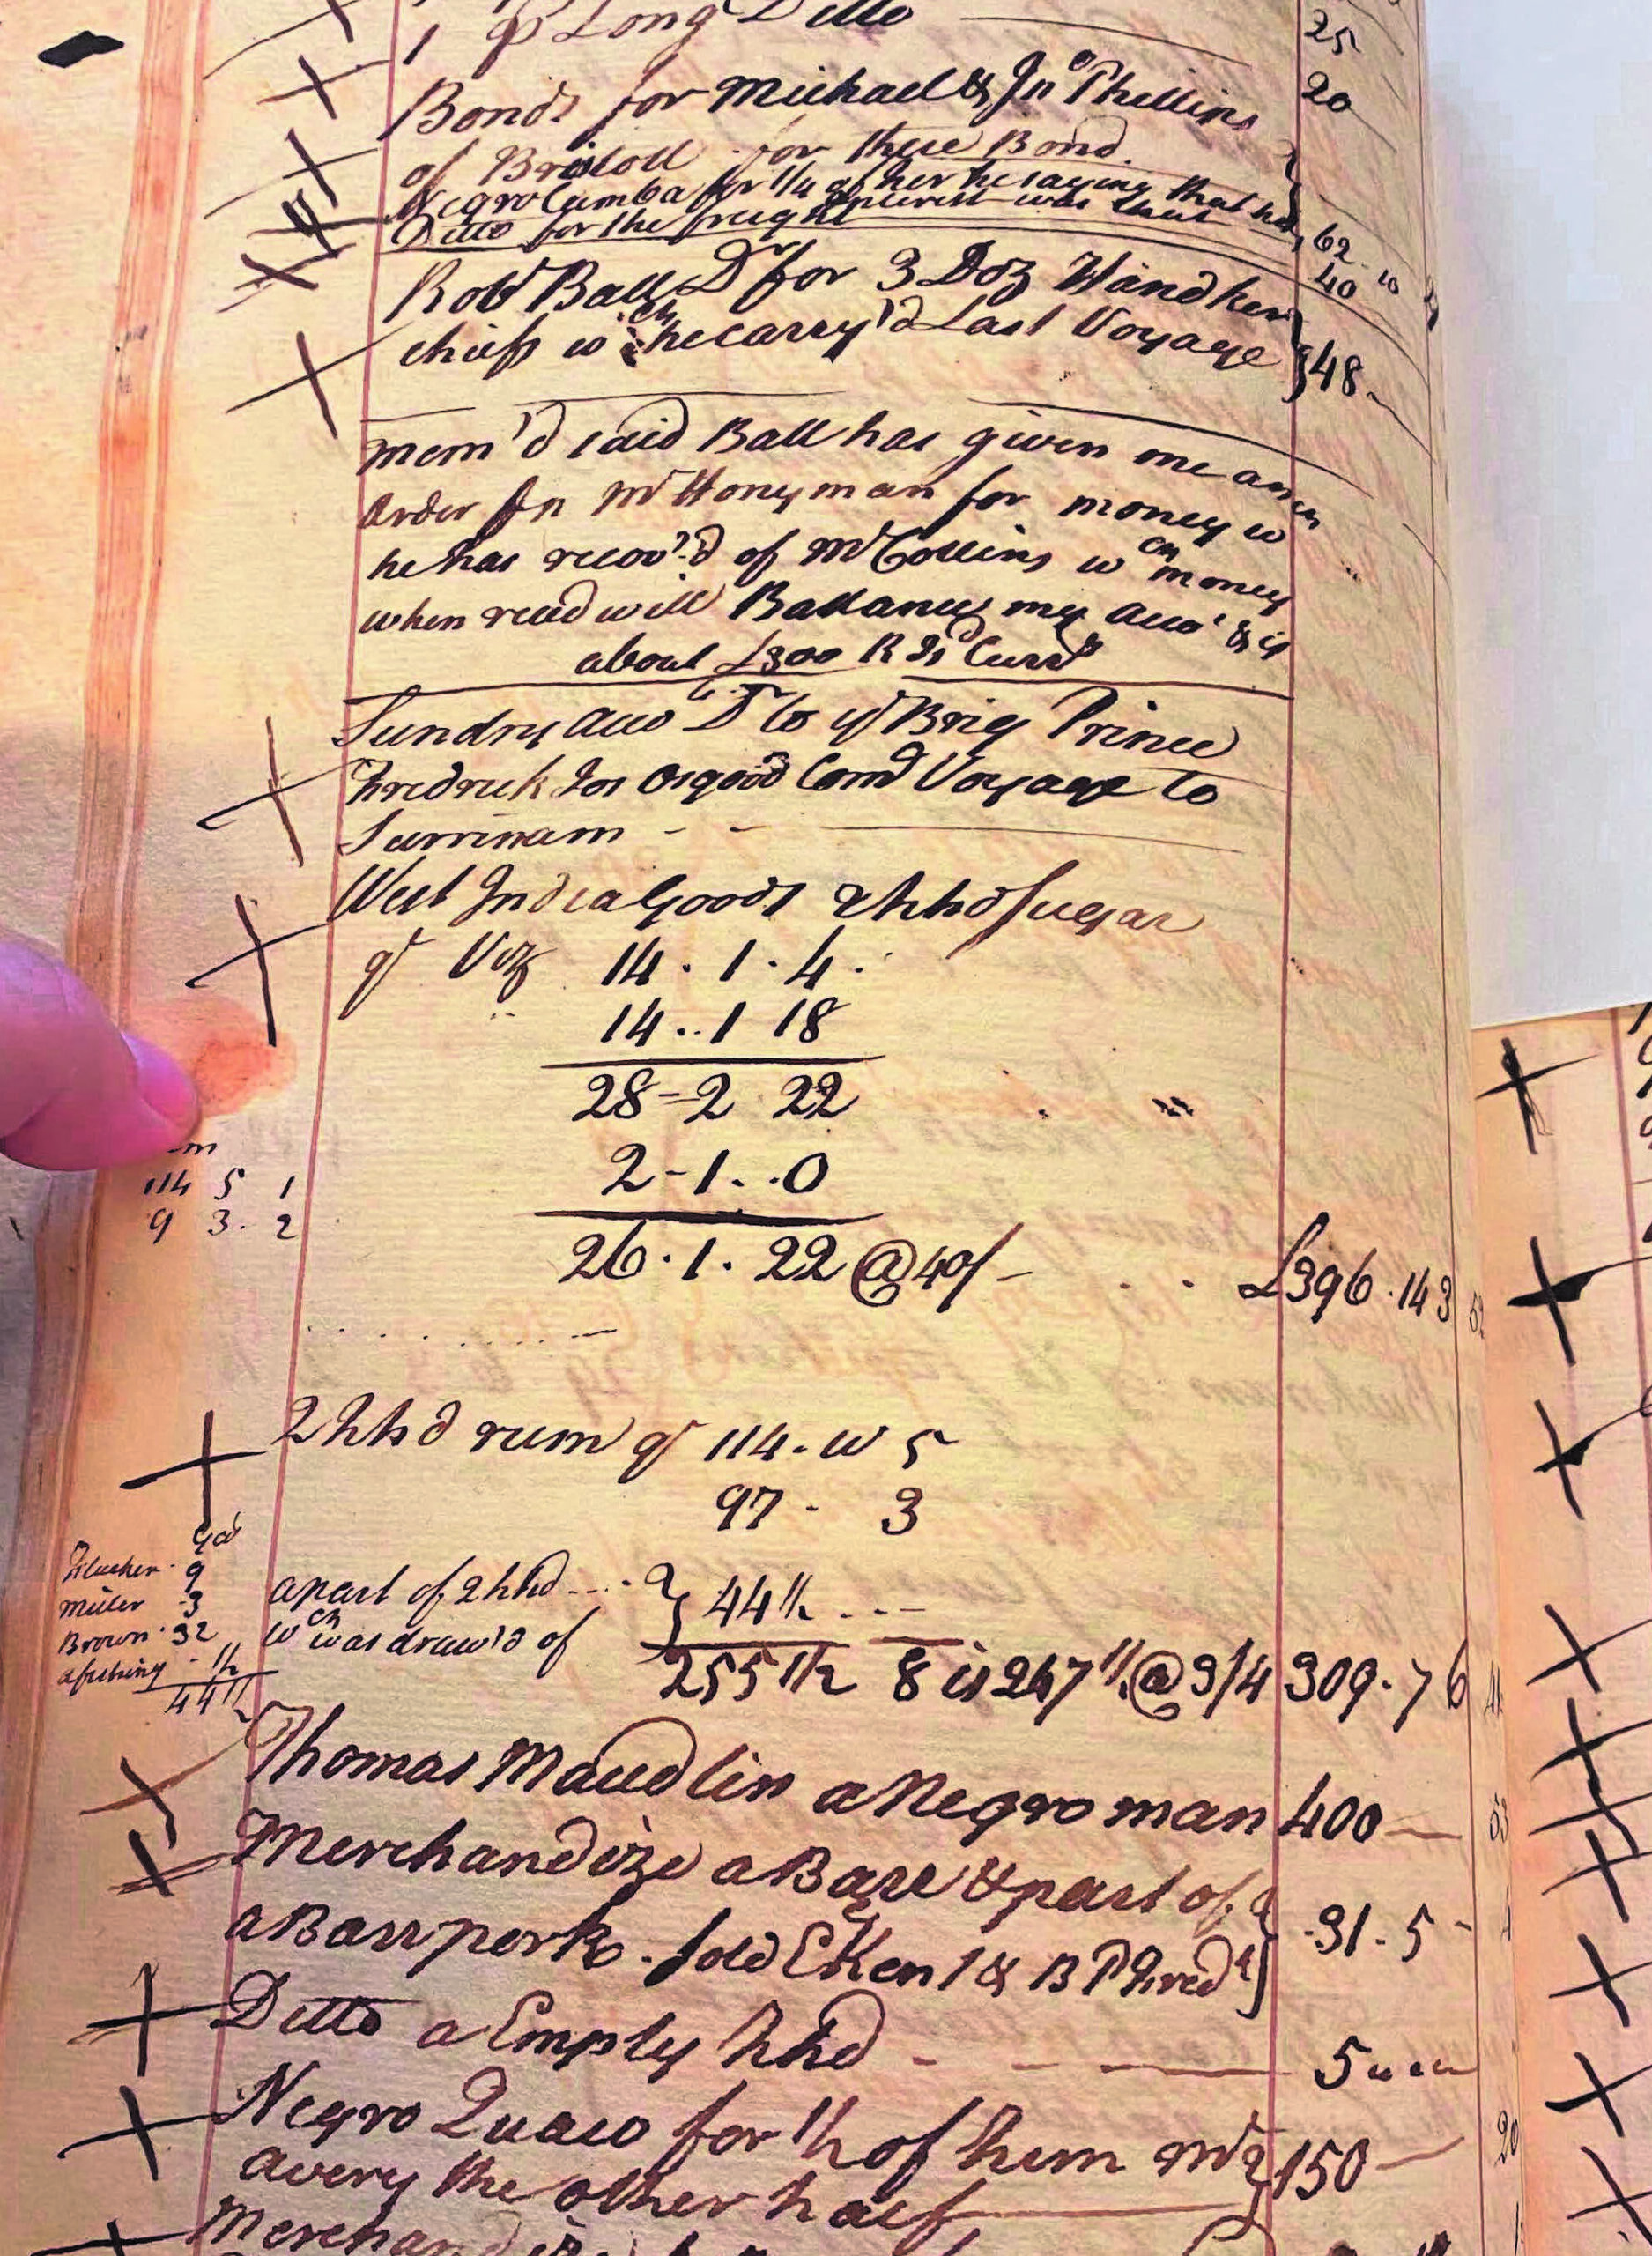 1 ps Long Ditto 25
Bonds for Michael & Jno Phillips 20
of Bristoll for there Bond.
Negro Cumba for 1/4 of her he saying that his 62 10
Ditto for the freight Interest was that 40 10
Robt Ball Dr for 3 Doz Handker
chiefs wch he carry'd Last Voyage } 48
mem'd said Ball has given me an
order on Mr Honyman for money wch
he has recov'd of Mr Collins wch money
when recd will Ballance my Acco' & is
about £300 R Isd Curry
Sundry Acco Dr to ye Brig Prince
Fredrick Jos Osgood Comd Voyage to
Surrinam - -
West India Goods 2 hhd Sugar
qt Viz 14 . 1 . 4 .
14 .. 1 18
28 - 2 22
2 - 1 .. 0
114 5 1
9 3 . 2
26 . 1 . 22 @ 40/ - £396 . 14 3
2 hhd rum qt 114 - w 5
97 - 3
Gal
Flucker 9
Miller 3
Brown 32
44 1/2
apart of 2 hhd .... } 44 1/2 ---
wch was draw'd of
255 1/2 8 is 247 1/2 @ 3/4 309 . 7 6
Thomas Maudlin a Negro man 400
Merchandize a Barr & part of }
a Barr pork . sold 31 . 5 -
Ditto a Empty hhd - - 5
Negro Quaco for 1/2 of him Mr } 150
Avery the other half